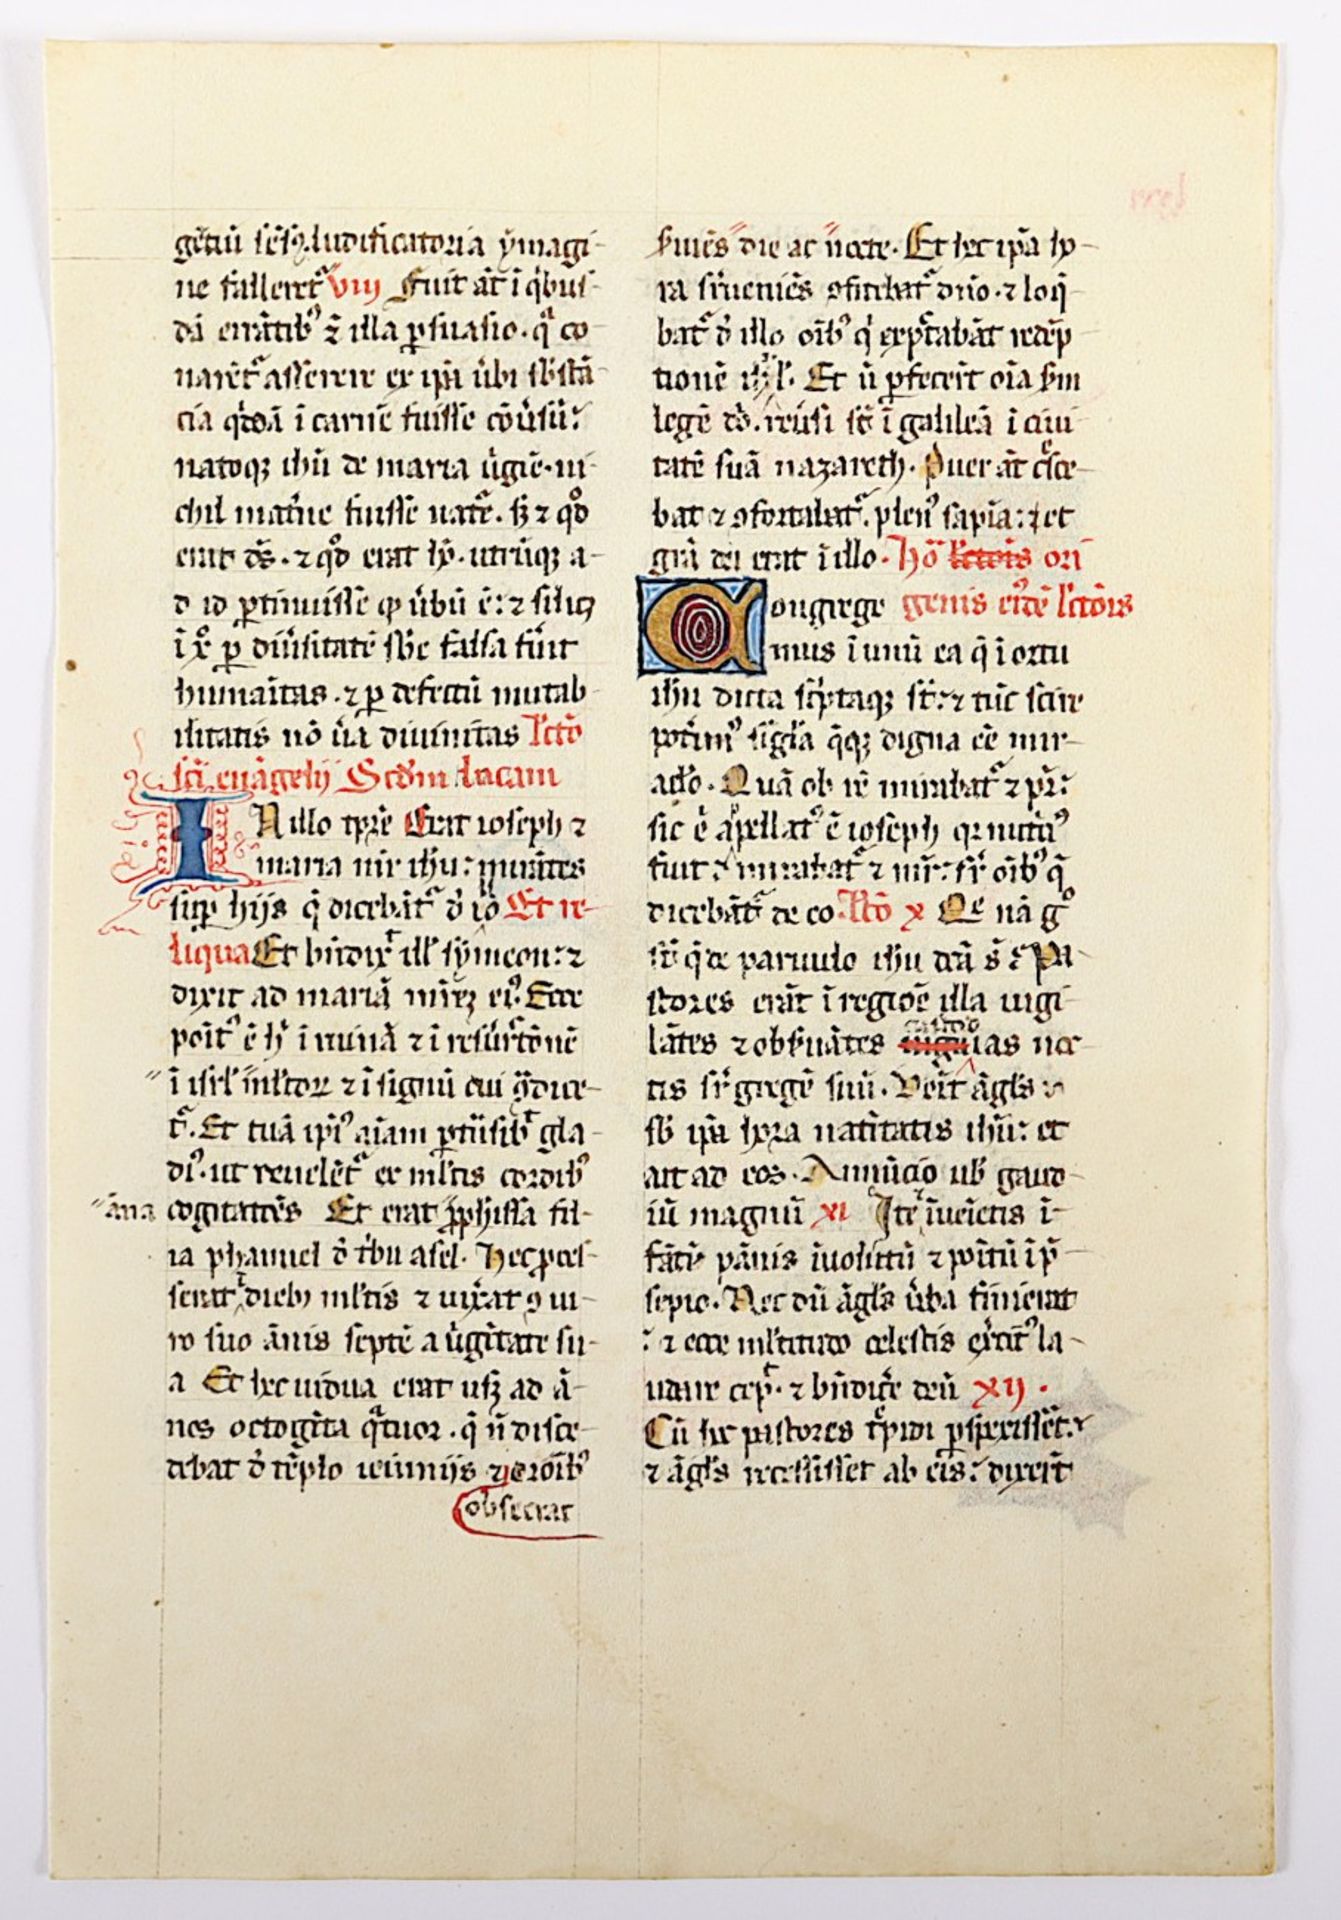 gētiū sēsꝰ ludificatoria ymagi-
ne falleret᷑ viij Fuit āt ī qͥbus-
dā errātibꝰ ⁊ illa ꝑsuasio. qᷓ co-
narēt᷑ asserere ex ipā ūbi sb̄stā
cia qͥdā ī carnē fuisse cōūsū:
natoqꝫ ihū de maria ūgīe. ni-
chil matͥne fuisse nat᷑e. sꝫ ⁊ qͦd
erat dꝰ. ⁊ qͦd erat hō. utrūqꝫ a-
d id ꝑtinuisse qͥ ūbū ē: ⁊ filiꝰ
ī xͦ ꝑ diūsitatē sb̄e falsa fūit
humāitas. ⁊ ꝑ defectū mutab-
ilitatis nō ūa diuinitas lc̄tō
sc̄i euāgelij Scd̄m lucam
IN illo tp̄re Erat ioseph ⁊
maria mr̄ ihū: mirātes
suꝑ hijs q̄ dicebāt᷑ d̄ io Et re-
liqua Et bn̄dixͭ ill̓ symeon: ⁊
dixit ad mariā mr̄eꝫ eiꝰ. Ecce
poīt᷑ ē hͥ ī ruinā ⁊ ī resūrctōnē
ī isrl̓ ml̓tor ⁊ ī signū cui ↄ̄dice-
t᷑. Et tuā ipīꝰ aīam ꝑtn̄sibͭ gla-
diꝰ. ut reuelēt᷑ ex ml̓tis cordibꝰ
āna cogitatēs Et erat ꝓphissa fil-
ia phanuel d̄ tͥbu asel. Hec ꝓces-
serat ͭ diebꝫ ml̓tis ⁊ uixͣat ꝯ ui-
ro suo ānis septē a ūgītate su-
a Et hec uidua erat usꝫ ad ā-
nos octogīta qᷓtuor. q̄ n̄ disce-
debat d̄ tēplo ieiunijs ⁊ orōībꝰ
obsecrat
ẜuiēs die ac nocte. Et hec ipā ho-
ra sr̄ueniēs ꝯfitebat᷑ dn̄o. ⁊ loq̄-
bat᷑ d̄ illo oībꝰ qͥ expͨtabāt redēp
tionē isrl̓. Et ū ꝑfecerīt oīa ẜm
legē dō. reūsi st̄ ī galileā ī ciui-
tatē suā nazareth. Puer āt cͤsce-
bat ⁊ ꝯfortabat᷑. plenꝰ sapīa: et
gr̄a dei erat ī illo. hō lc̄tois ori
Congrege genis eiꝰdē lc̄tōis
mus ī unū ea q̄ ī ortu
ihū dicta scͥptaqꝫ st̄: ⁊ tūc scire
potͥimꝰ sīgl̓a q̄qꝫ digna eē mir-
aclo. Quā ob rē mirabat᷑ ⁊ pr̄:
sic ē apellatꝰ ē ioseph qͥ nutͥtꝰ
fuit: mirabat᷑ ⁊ mr̄: sr̄ oībꝰ q̄
dicebāt᷑ de eo. lc̄tō x Qe nā gͦ
st̄ q̄ de paruulo ihu dc̄a st̄ Pa-
stores erāt ī regiōe illa uigi-
lātes ⁊ obẜuātes custodias noc-
tis sr̄ gregē suū. Venīt āgl̓s
sb̓ ipā hora natītatis ihū: et
ait ad eos. Annūcio uob̓ gaud-
iū magnū xi Ite īueīetis ī-
fātē pānis īuolutū ⁊ poitū ī p̄-
sepio. Nec dū āgl̓s ūba finierat
: ⁊ ecce ml̓titudo celestis exͨitꝰ la-
udare cep̄ͭ ⁊ bn̄dicͤe deū xij.
Cū hec pastores tͤpidi ꝑspexissēt:
⁊ āgl̓s recessisset ab eis: dixerīt